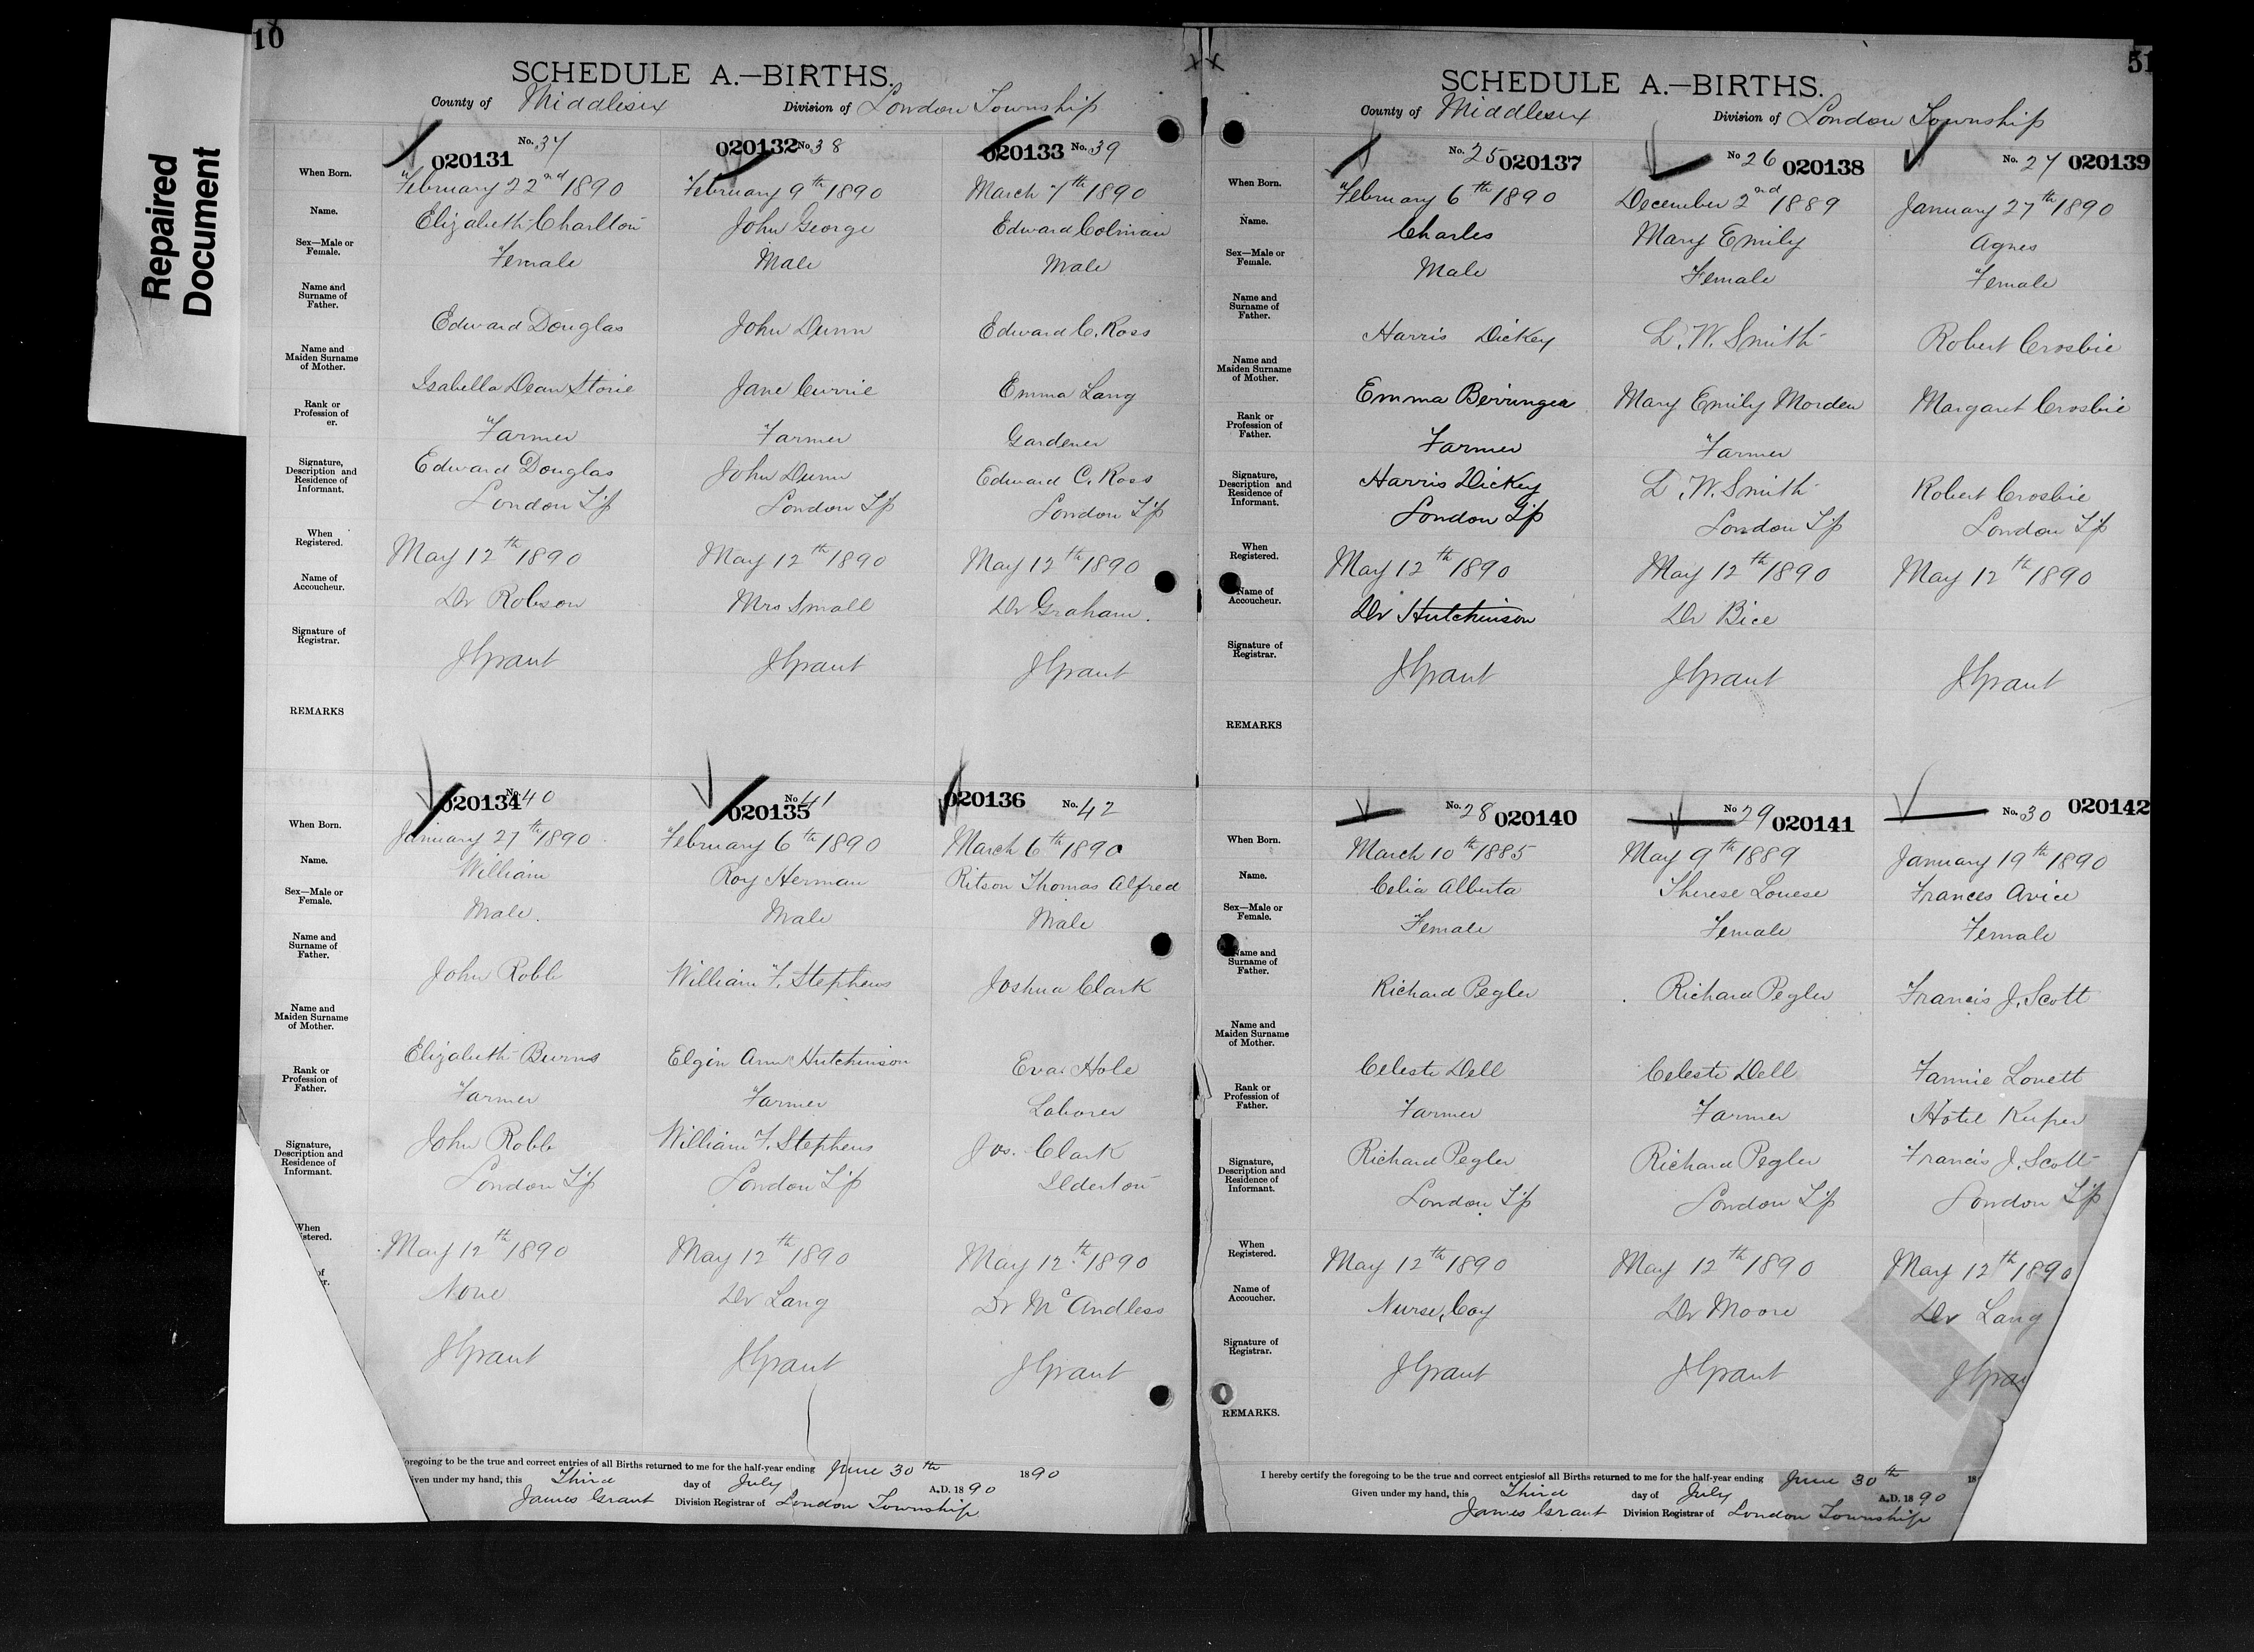 Repaired
Document
10
SCHEDULE A.—BIRTHS.
County of Middlesex Division of London Township
020131 No. 37 020132 No 38 020133 No. 39
When Born. February 22nd 1890 February 9th 1890 March 7th 1890
Name. Elizabeth Charlton John George Edward Colman
Sex—Male or Female. Female Male Male
Name and Surname of Father. Edward Douglas John Dunn Edward C. Ross
Name and Maiden Surname of Mother. Isabella Dean Storie Jane Currie Emma Lang
Rank or Profession of er. Farmer Farmer Gardener
Signature, Description and Residence of Informant. Edward Douglas John Dunn Edward C. Ross
London Tp London Tp London Tp
When Registered. May 12th 1890 May 12th 1890 May 12th 1890
Name of Accoucheur. Dr Robson Mrs Small Dr Graham.
Signature of Registrar. J Grant J Grant J Grant
REMARKS
020134 No. 40 020135 No 41 020136 No. 42
When Born. January 27th 1890. February 6th 1890 March 6th 1890
Name. William Roy Herman Ritson Thomas Alfred
Sex—Male or Female. Male. Male Male
Name and Surname of Father. John Robb William F. Stephens Joshua Clark
Name and Maiden Surname of Mother. Elizabeth Burns Elgin Ann Hutchinson Eva Hole
Rank or Profession of Father. Farmer Farmer Laborer
Signature, Description and Residence of Informant. John Robb William F. Stephens Jos. Clark
London Tp London Tp Ilderton
When istered. May 12th 1890 May 12th 1890 May 12th 1890
of r. None Dr Lang Dr McCandless
J Grant J Grant J Grant
oregoing to be the true and correct entries of all Births returned to me for the half-year ending June 30th 1890
iven under my hand, this Third day of July A.D. 1890
James Grant Division Registrar of London Township
51
SCHEDULE A.—BIRTHS.
County of Middlesex Division of London Township
No. 25 020137 No 26 020138 No. 27 020139
When Born. February 6th 1890 December 2nd 1889 January 27th 1890
Name. Charles Mary Emily Agnes
Sex—Male or Female. Male Female Female
Name and Surname of Father. Harris Dickey L. W. Smith Robert Crosbie
Name and Maiden Surname of Mother. Emma Mary Emily Morden Margaret Crosbie
Rank or Profession of Father. Farmer Farmer
Signature, Description and Residence of Informant. Harris Dickey L. W. Smith Robert Crosbie
London Tp London Tp London Tp
When Registered. May 12th 1890 May 12th 1890 May 12th 1890
Name of Accoucheur. Dr Hutchinson Dr Bice
Signature of Registrar. J Grant J Grant J Grant
REMARKS
No. 28 020140 No 29 020141 No. 30 020142
When Born. March 10th 1885 May 9th 1889 January 19th 1890
Name. Celia Alberta Therese Louese Frances Avice
Sex—Male or Female. Female Female Female
Name and Surname of Father. Richard Pegler Richard Pegler Francis J. Scott
Name and Maiden Surname of Mother. Celeste Dell Celeste Dell Fannie Lovett
Rank or Profession of Father. Farmer Farmer Hotel Keeper
Signature, Description and Residence of Informant. Richard Pegler Richard Pegler Francis J. Scott
London Tp London Tp London Tp
When Registered. May 12th 1890 May 12th 1890 May 12th 1890
Name of Accoucheur. Nurse, Coy Dr Moore Dr Lang
Signature of Registrar. J Grant J Grant J Gra
REMARKS.
I hereby certify the foregoing to be the true and correct entries of all Births returned to me for the half-year ending June 30th 18
Given under my hand, this Third day of July A.D. 1890
James Grant Division Registrar of London Township